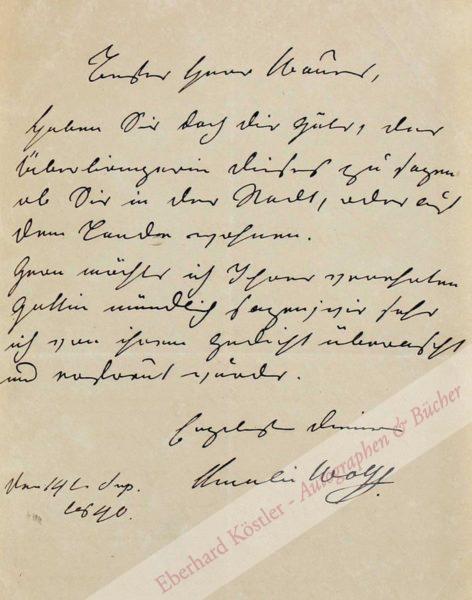 Herr
haben Sie doch die Güte, der
Überbringerin dieses zu sagen
ob Sie in der Stadt, oder auf
dem Lande wohnen.
Gern möchte ich Ihrer verehrten
Gattin mündlich sagen, wie sehr
ich von ihrem Gedicht überrascht
und erfreut wurde.
Amalie Wolff.
den 14t. Sep.
Eberhard Köstler - Autographen & Bücher